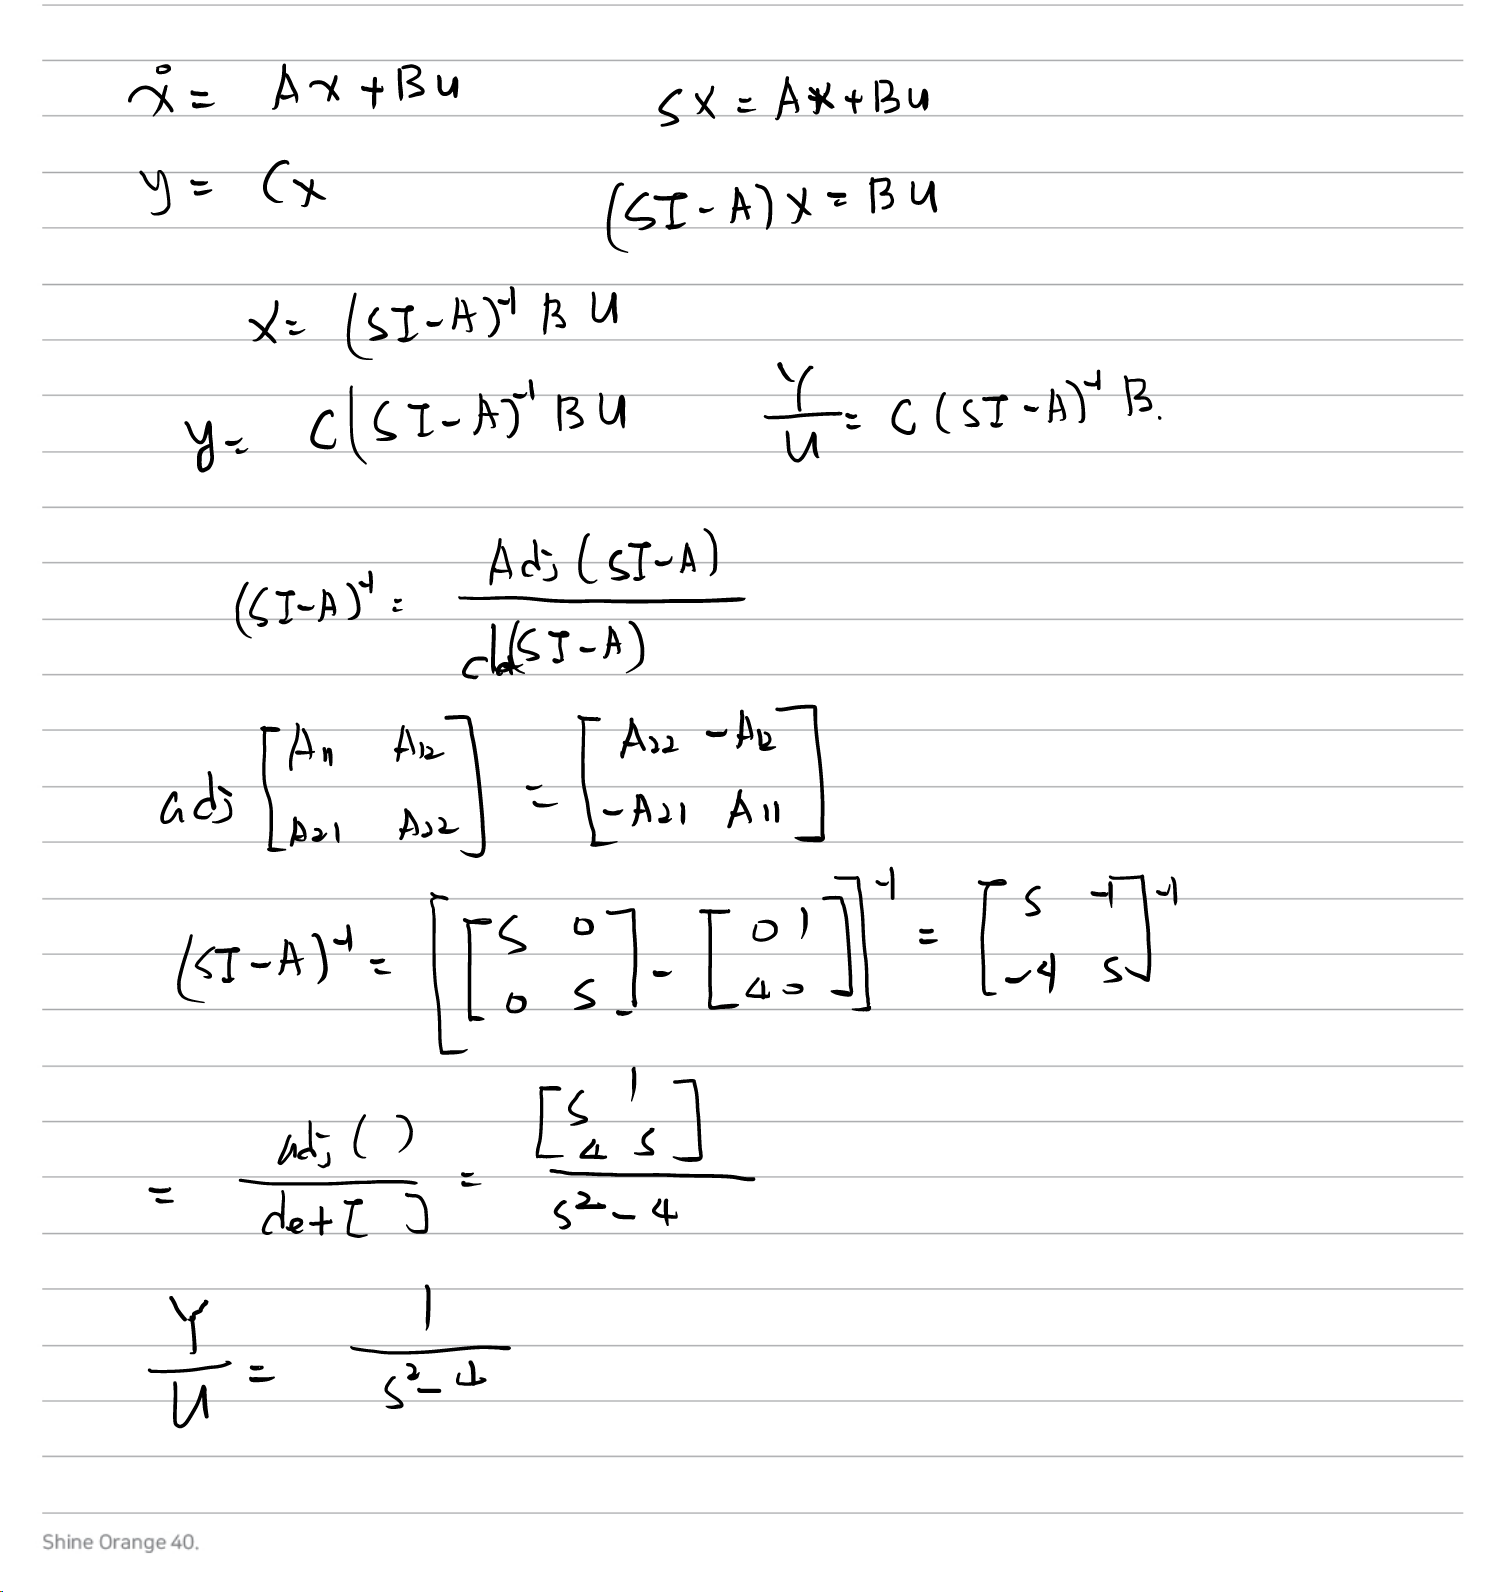 ẋ = Ax + Bu    sX = AX + Bu
y = Cx    (SI - A) X = BU
X = (SI - A)⁻¹ B U
y = C(SI - A)⁻¹ B U    Y/U = C (SI - A)⁻¹ B.
(SI - A)⁻¹ = Adj (SI - A) / det(SI - A)
adj [A11 A12; A21 A22] = [A22 -A12; -A21 A11]
(SI - A)⁻¹ = [[S 0; 0 S] - [0 1; 4 0]]⁻¹ = [S -1; -4 S]⁻¹
= adj ( ) / det [ ] = [S 1; 4 S] / S² - 4
Y/U = 1 / S² - 4
Shine Orange 40.